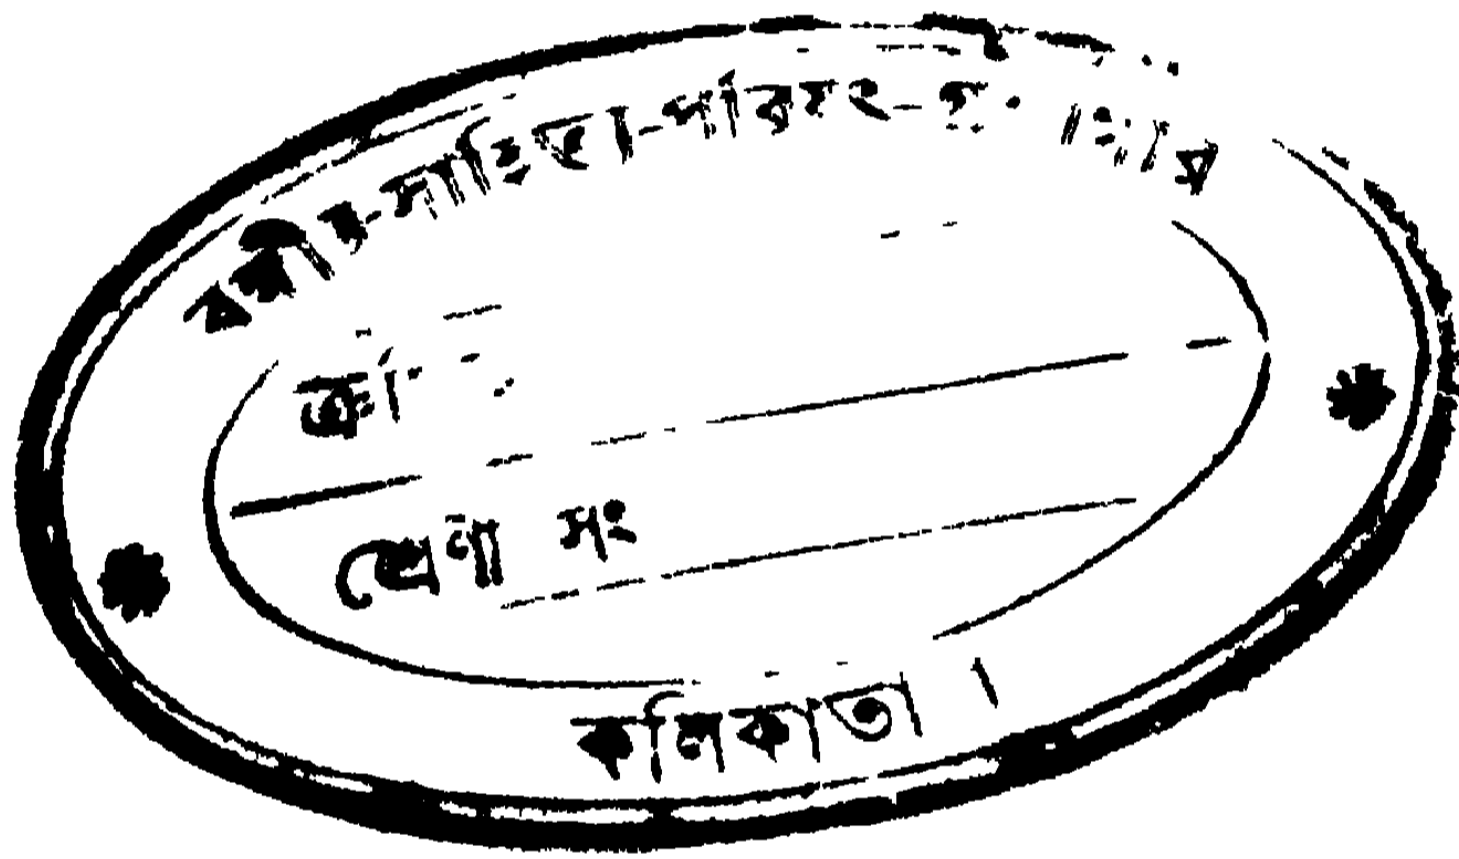 বঙ্গীয়-সাহিত্য-পরিষৎ-গ্রন্থাগার
শ্রেণী সং
কলিকাতা।